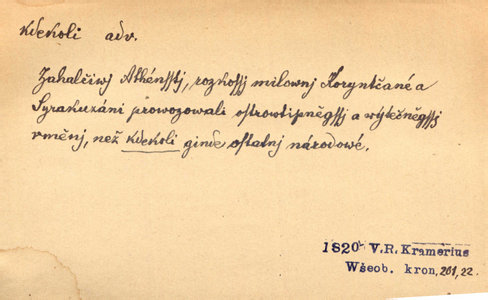 kdekoli adv.
Zahalčiwj Athénsstj, rozkossj milownj Koryntčané a
Syrakuzáni prowozowali ostrowtipněgssj a wýtečněgssj
vměnj, než kdekoli ginde ostatnj národowé.
1820 V.R. Kramerius
Wšeob. kron, 201, 22.